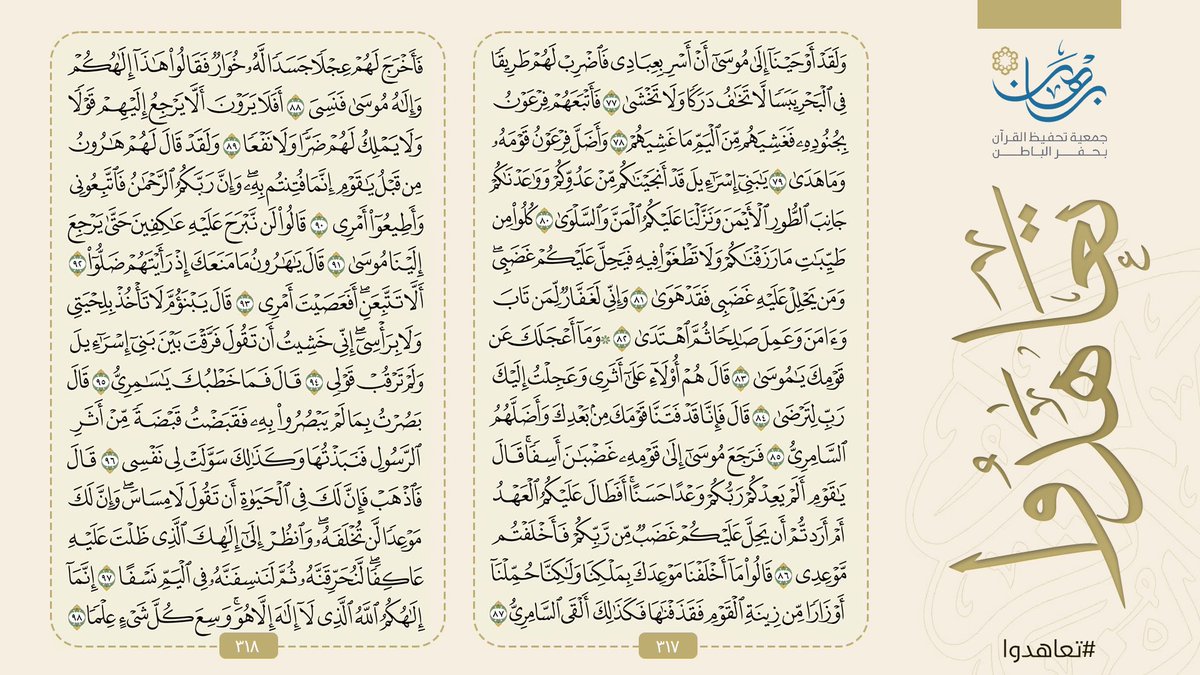 برهان
جمعية تحفيظ القرآن
بحفر الباطن
تعاهدوا
#تعاهدوا
وَلَقَدْ أَوْحَيْنَا إِلَىٰ مُوسَىٰ أَنْ أَسْرِ بِعِبَادِي فَاضْرِبْ لَهُمْ طَرِيقًا
فِي الْبَحْرِ يَبَسًا لَّا تَخَافُ دَرَكًا وَلَا تَخْشَىٰ ٧٧ فَأَتْبَعَهُمْ فِرْعَوْنُ
بِجُنُودِهِ فَغَشِيَهُم مِّنَ الْيَمِّ مَا غَشِيَهُمْ ٧٨ وَأَضَلَّ فِرْعَوْنُ قَوْمَهُ
وَمَا هَدَىٰ ٧٩ يَا بَنِي إِسْرَائِيلَ قَدْ أَنجَيْنَاكُم مِّنْ عَدُوِّكُمْ وَوَاعَدْنَاكُمْ
جَانِبَ الطُّورِ الْأَيْمَنَ وَنَزَّلْنَا عَلَيْكُمُ الْمَنَّ وَالسَّلْوَىٰ ٨٠ كُلُوا مِن
طَيِّبَاتِ مَا رَزَقْنَاكُمْ وَلَا تَطْغَوْا فِيهِ فَيَحِلَّ عَلَيْكُمْ غَضَبِي
وَمَن يَحْلِلْ عَلَيْهِ غَضَبِي فَقَدْ هَوَىٰ ٨١ وَإِنِّي لَغَفَّارٌ لِّمَن تَابَ
وَآمَنَ وَعَمِلَ صَالِحًا ثُمَّ اهْتَدَىٰ ٨٢ وَمَا أَعْجَلَكَ عَن
قَوْمِكَ يَا مُوسَىٰ ٨٣ قَالَ هُمْ أُولَاءِ عَلَىٰ أَثَرِي وَعَجِلْتُ إِلَيْكَ
رَبِّ لِتَرْضَىٰ ٨٤ قَالَ فَإِنَّا قَدْ فَتَنَّا قَوْمَكَ مِن بَعْدِكَ وَأَضَلَّهُمُ
السَّامِرِيُّ ٨٥ فَرَجَعَ مُوسَىٰ إِلَىٰ قَوْمِهِ غَضْبَانَ أَسِفًا قَالَ
يَا قَوْمِ أَلَمْ يَعِدْكُمْ رَبُّكُمْ وَعْدًا حَسَنًا أَفَطَالَ عَلَيْكُمُ الْعَهْدُ
أَمْ أَرَدتُّمْ أَن يَحِلَّ عَلَيْكُمْ غَضَبٌ مِّن رَّبِّكُمْ فَأَخْلَفْتُم
مَّوْعِدِي ٨٦ قَالُوا مَا أَخْلَفْنَا مَوْعِدَكَ بِمَلْكِنَا وَلَٰكِنَّا حُمِّلْنَا
أَوْزَارًا مِّن زِينَةِ الْقَوْمِ فَقَذَفْنَاهَا فَكَذَٰلِكَ أَلْقَى السَّامِرِيُّ ٨٧
٣١٧
فَأَخْرَجَ لَهُمْ عِجْلًا جَسَدًا لَّهُ خُوَارٌ فَقَالُوا هَٰذَا إِلَٰهُكُمْ
وَإِلَٰهُ مُوسَىٰ فَنَسِيَ ٨٨ أَفَلَا يَرَوْنَ أَلَّا يَرْجِعُ إِلَيْهِمْ قَوْلًا
وَلَا يَمْلِكُ لَهُمْ ضَرًّا وَلَا نَفْعًا ٨٩ وَلَقَدْ قَالَ لَهُمْ هَارُونُ
مِن قَبْلُ يَا قَوْمِ إِنَّمَا فُتِنتُم بِهِ وَإِنَّ رَبَّكُمُ الرَّحْمَٰنُ فَاتَّبِعُونِي
وَأَطِيعُوا أَمْرِي ٩٠ قَالُوا لَن نَّبْرَحَ عَلَيْهِ عَاكِفِينَ حَتَّىٰ يَرْجِعَ
إِلَيْنَا مُوسَىٰ ٩١ قَالَ يَا هَارُونُ مَا مَنَعَكَ إِذْ رَأَيْتَهُمْ ضَلُّوا ٩٢
أَلَّا تَتَّبِعَنِ أَفَعَصَيْتَ أَمْرِي ٩٣ قَالَ يَبْنَؤُمَّ لَا تَأْخُذْ بِلِحْيَتِي
وَلَا بِرَأْسِي إِنِّي خَشِيتُ أَن تَقُولَ فَرَّقْتَ بَيْنَ بَنِي إِسْرَائِيلَ
وَلَمْ تَرْقُبْ قَوْلِي ٩٤ قَالَ فَمَا خَطْبُكَ يَا سَامِرِيُّ ٩٥ قَالَ
بَصُرْتُ بِمَا لَمْ يَبْصُرُوا بِهِ فَقَبَضْتُ قَبْضَةً مِّنْ أَثَرِ
الرَّسُولِ فَنَبَذْتُهَا وَكَذَٰلِكَ سَوَّلَتْ لِي نَفْسِي ٩٦ قَالَ
فَاذْهَبْ فَإِنَّ لَكَ فِي الْحَيَاةِ أَن تَقُولَ لَا مِسَاسَ وَإِنَّ لَكَ
مَوْعِدًا لَّن تُخْلَفَهُ وَانظُرْ إِلَىٰ إِلَٰهِكَ الَّذِي ظَلْتَ عَلَيْهِ
عَاكِفًا لَّنُحَرِّقَنَّهُ ثُمَّ لَنَنسِفَنَّهُ فِي الْيَمِّ نَسْفًا ٩٧ إِنَّمَا
إِلَٰهُكُمُ اللَّهُ الَّذِي لَا إِلَٰهَ إِلَّا هُوَ وَسِعَ كُلَّ شَيْءٍ عِلْمًا ٩٨
٣١٨